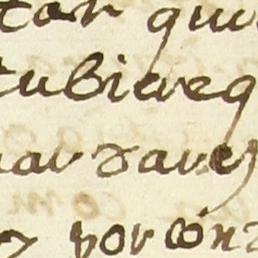 tar qui
tubiereq
uardare
por con